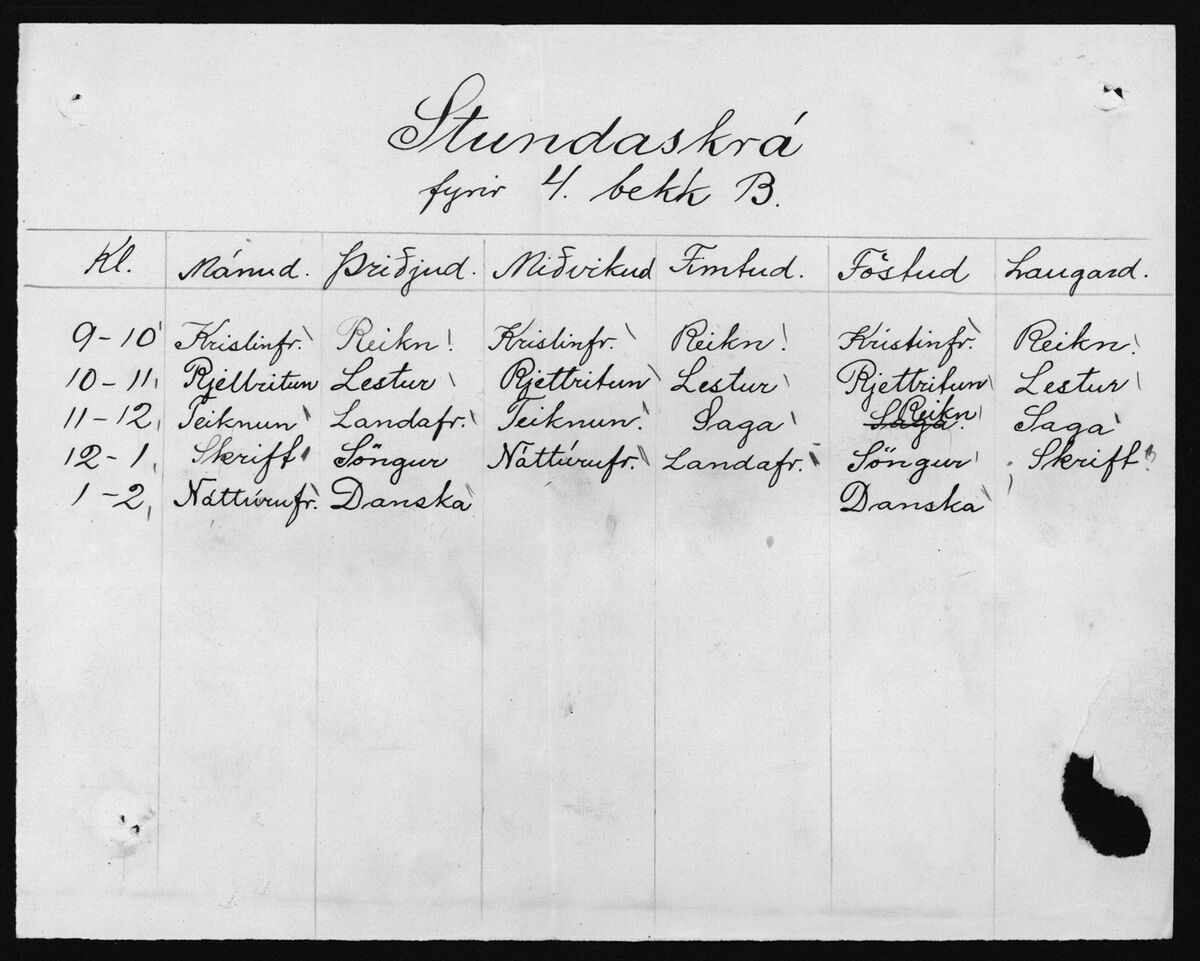 Stundaskrá
fyrir 4. bekk B.
Kl. Mánud. Þriðjud. Miðvikud Fimtud. Föstud Laugard.
9-10 Kristinfr. Reikn. Kristinfr. Reikn. Kristinfr. Reikn.
10-11 Rjettritun Lestur Rjettritun Lestur Rjettritun Lestur
11-12 Teiknun Landafr. Teiknun. Saga Saga Reikn. Saga
12-1 Skrift Söngur Náttúrufr. Landafr. Söngur Skrift
1-2 Náttúrufr. Danska Danska